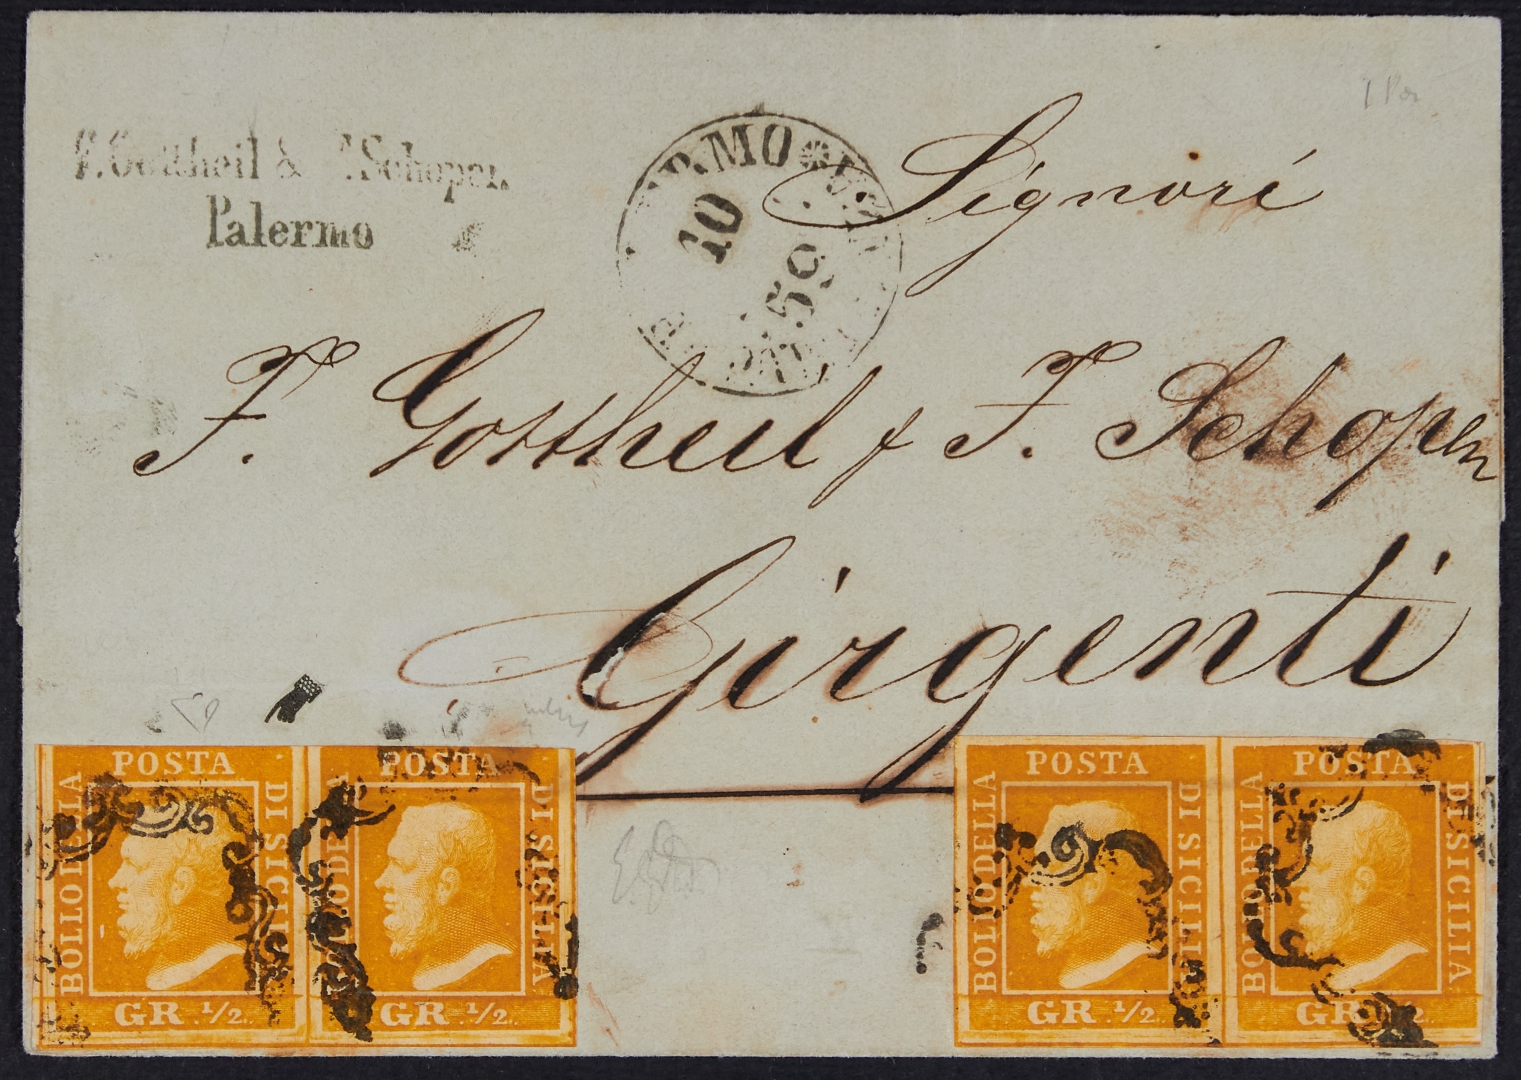 Gottheil & Schopen
Palermo
10
59
Signori
F. Gottheil & F. Schopen
Girgenti
POSTA
BOLLO DELLA
DI SICILIA
GR. 1/2.
POSTA
BOLLO DELLA
DI SICILIA
GR. 1/2.
POSTA
BOLLO DELLA
DI SICILIA
GR. 1/2.
POSTA
BOLLO DELLA
DI SICILIA
GR. 1/2.